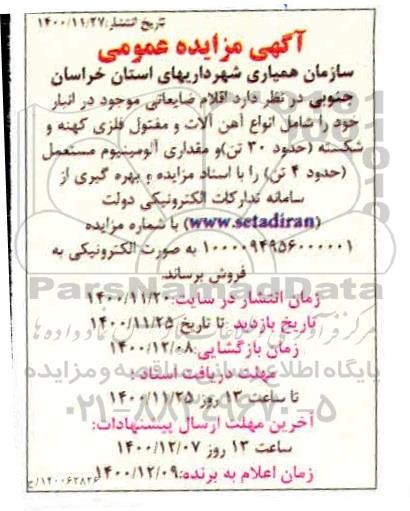 تاریخ انتشار:۱۴۰۰/۱۱/۲۷
آگهی مزایده عمومی
سازمان همیاری شهرداریهای استان خراسان
جنوبی در نظر دارد اقلام ضایعاتی موجود در انبار
خود را شامل انواع آهن آلات و مفتول فلزی کهنه و
شکسته (حدود ۳۰ تن)و مقداری آلومینیوم مستعمل
(حدود ۴ تن) را با اسناد مزایده و بهره گیری از
سامانه تدارکات الکترونیکی دولت
(www.setadiran) با شماره مزایده
۱۰۰۰۰۹۴۹۵۶۰۰۰۰۰۱ به صورت الکترونیکی به
فروش برساند.
زمان انتشار در سایت:۱۴۰۰/۱۱/۲۰
تاریخ بازدید تا تاریخ ۱۴۰۰/۱۱/۲۵
زمان بازگشایی:۱۴۰۰/۱۲/۰۸
مهلت دریافت اسناد:
تا ساعت ۱۳ روز ۱۴۰۰/۱۱/۲۵
آخرین مهلت ارسال پیشنهادات:
ساعت ۱۳ روز ۱۴۰۰/۱۲/۰۷
زمان اعلام به برنده:۱۴۰۰/۱۲/۰۹
۱۴۰۰۶۲۸۲۶/خ
ParsNamadData
پایگاه اطلاع رسانی مناقصه و مزایده
۰۲۱-۸۸۳۴۹۶۷۰-۵